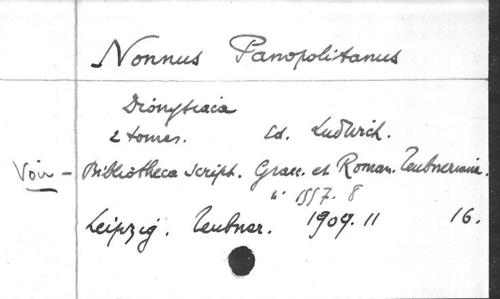 Nonnus Panopolitanus
Dionysiaca
2 tomes. Ed. Ludwich.
Voir - Bibliotheca script. Graec. et Roman. Teubneriana.
" 1557. 8
Leipzig. Teubner. 1909. 11 16.